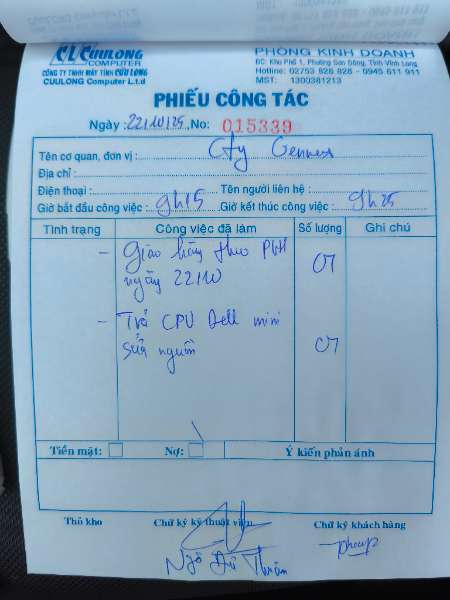 CUULONG
COMPUTER
CÔNG TY TNHH MÁY TÍNH CỬU LONG
CUULONG Computer L.t.d
PHÒNG KINH DOANH
ĐC: Khu Phố 1, Phường Sơn Đông, Tỉnh Vĩnh Long
Hotline: 02753 828 828 - 0945 611 911
MST: 1300381213
PHIẾU CÔNG TÁC
Ngày: 22/10/25 No: 015339
Tên cơ quan, đơn vị: Cty
Địa chỉ:
Điện thoại: Tên người liên hệ:
Giờ bắt đầu công việc: 9h15 Giờ kết thúc công việc: 9h25
Tình trạng Công việc đã làm Số lượng Ghi chú
- Giao hàng theo PGH 01
ngày 22/10
- Trả CPU Dell mini 01
sửa nguồn
Tiền mặt: Nợ: Ý kiến phản ánh
Thủ kho Chữ ký kỹ thuật viên Chữ ký khách hàng
Ngô